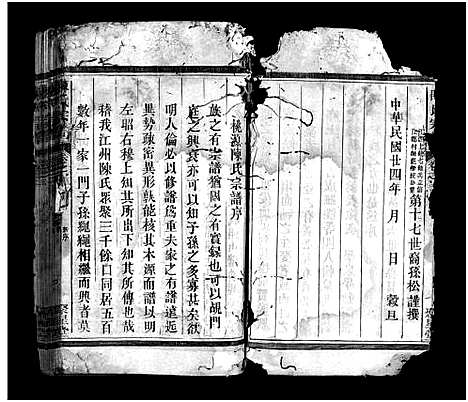 第十七世裔孫松謹撰
中華民國廿四年 月 日 穀旦
桃源陳氏宗譜序
族之有宗譜猶國之有實錄也可以覘門
庭之興衰亦可以知子孫之多寡甚矣欲
明人倫必以修譜為重夫家之有譜遠近
異勢疎密異形孰能核其本源而譜以明
左昭右穆上知其所出下知其所傳也哉
稽我江州陳氏聚三千餘口同居五百
數年一家一門子孫繩繩相繼而興者莫